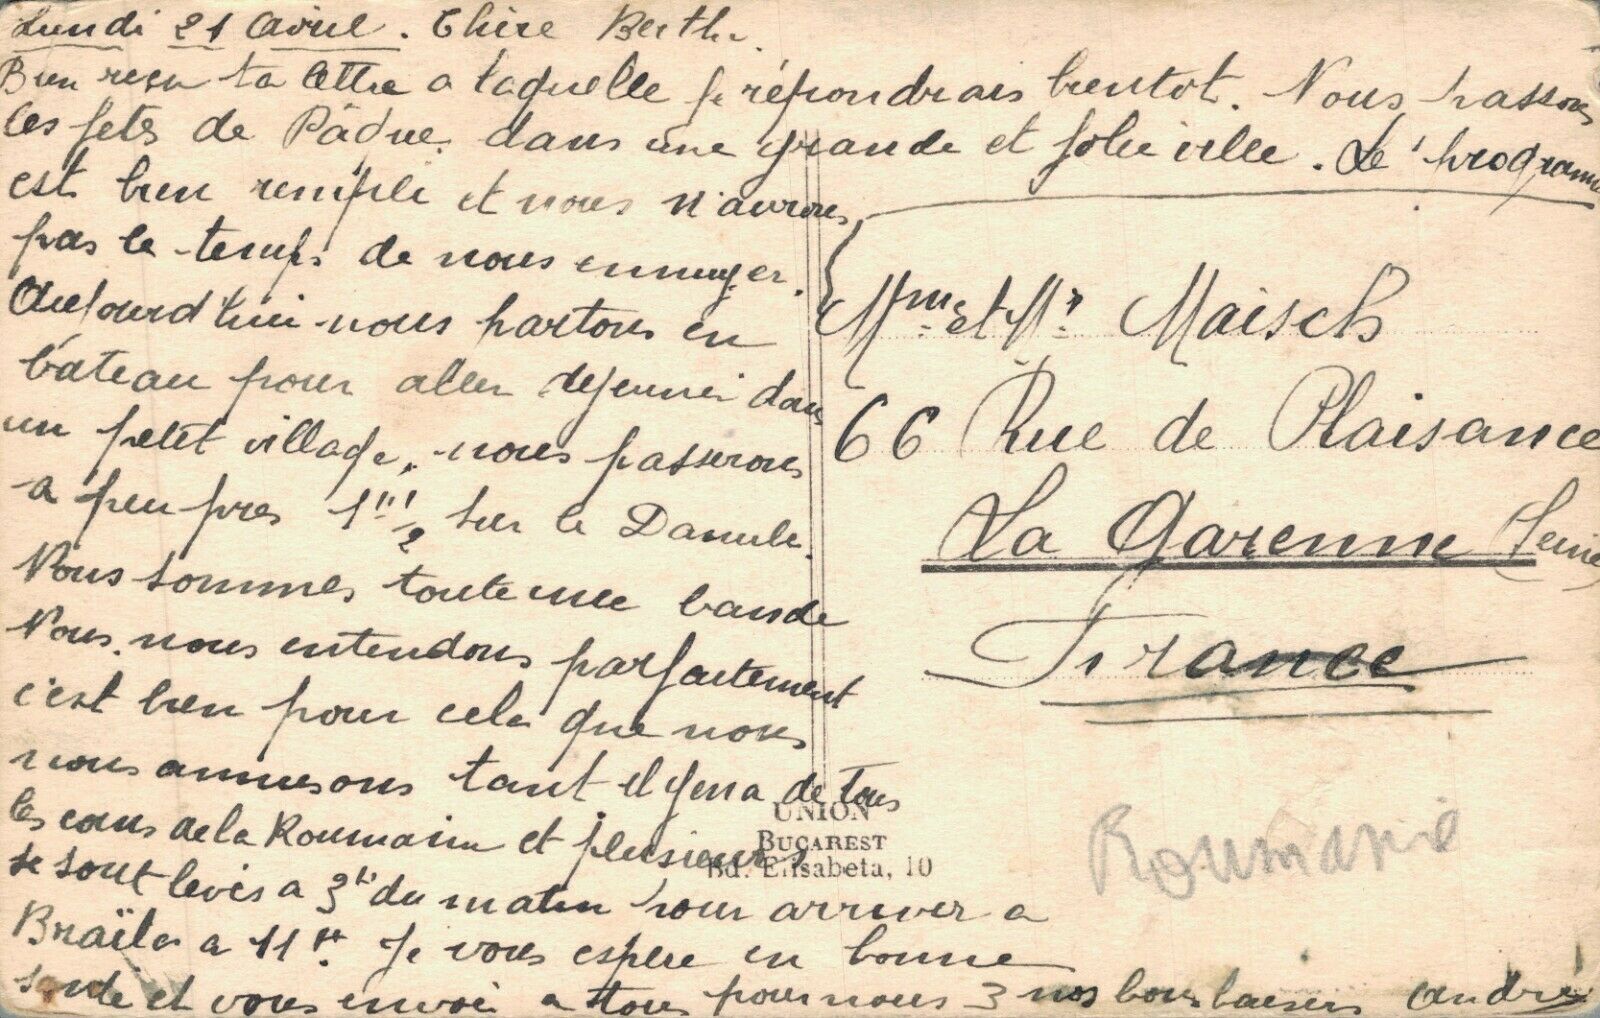 Lundi 21 Avril. Chère Berthe.
Bien reçu ta lettre a laquelle je répondrais bientot. Nous passons
les fetes de Pâque dans une grande et jolie ville. Le programme
est bien rempli et nous n'aurons
pas le temps de nous ennuyer.
Aujourd'hui nous partons en
bateau pour aller dejeuner dans
un petit village, nous passerons
a peu pres 1h 1/2 sur le Danube.
Nous sommes toute une bande
Nous nous entendons parfaitement
c'est bien pour cela que nous
nous amusons tant il y en a de tous
les coins de la Roumanie et plusieurs
se sont levés a 3h du matin pour arriver a
Braïla a 11h. Je vous espère en bonne
santé et vous envoi a tous pour nous 3 nos bons baisers André
Mme et Mr Maisch
66 Rue de Plaisance
La Garenne (Seine)
France
UNION
BUCAREST
Bd. Elisabeta, 10
Roumanie